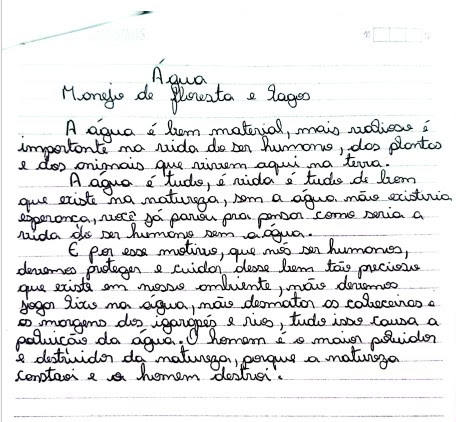 Água
Manejo de floresta e lagos
A água é bem material, mais valioso é
importante na vida do ser humano, das plantas
e dos animais que vivem aqui na terra.
A água é tudo, é vida é tudo de bom
que existe na natureza, sem a água não existiria
esperança, você já parou pra pensar como seria a
vida do ser humano sem a água.
É por esse motivo, que nós ser humanos,
devemos proteger e cuidar desse bem tão precioso
que existe em nosso ambiente, não devemos
jogar lixo na água, não desmatar as cabeceiras e
as margens dos igarapés e rios, tudo isso causa a
poluição da água. O homem é o maior poluidor
e destruidor da natureza, porque a natureza
constroi e o homem destroi.